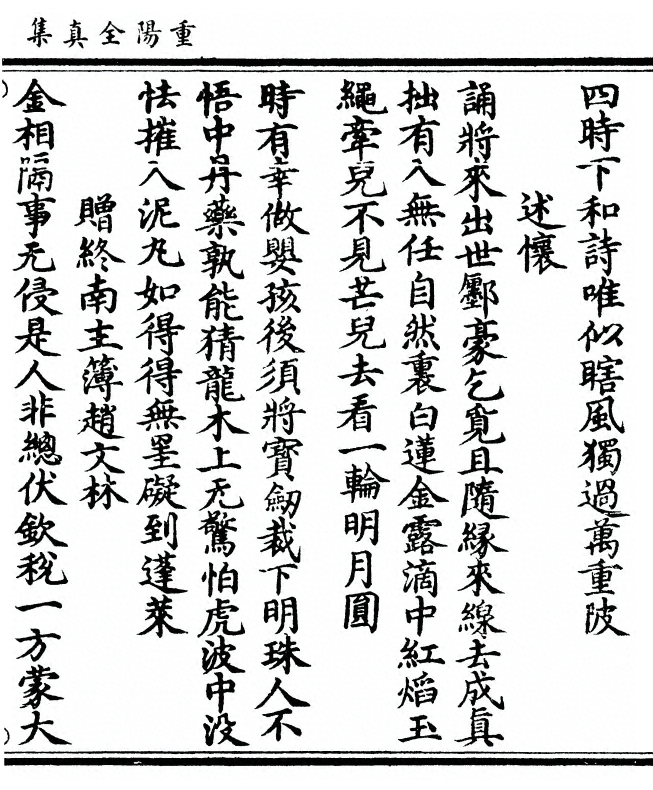 重陽全真集
四時下和詩唯似瞎風獨過萬重陂
述懷
誦將來出世酆豪乞覓且隨緣來線去成眞
拙有入無任自然裏白蓮金露滴中紅熖玉
繩牽兒不見芒兒去看一輪明月圓
時有幸做嬰孩後須將寳劒裁下明珠人不
悟中丹藥孰能猜龍木上无驚怕虎波中没
怯摧入泥丸如得得無罣礙到蓬萊
贈終南主簿趙文林
金相隔事无侵是人非總伏欽稅一方蒙大